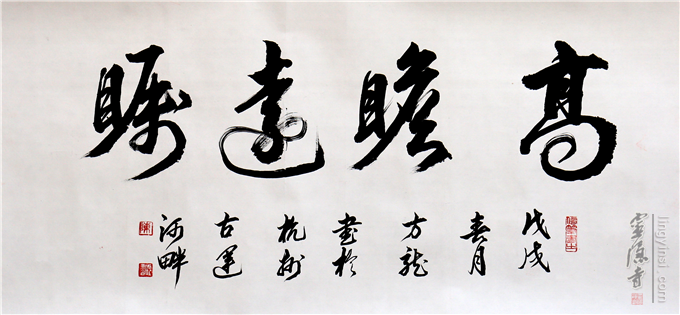 高瞻遠瞩
戊戌
春月
方龍
書於
杭州
古運
河畔
靈隱寺
lingyinsi.com